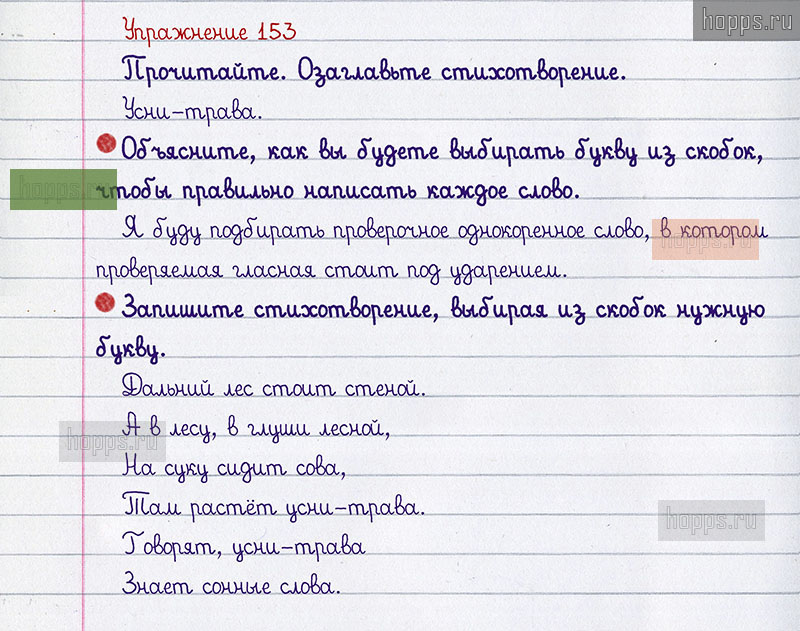 hopps.ru
Упражнение 153
Прочитайте. Озаглавьте стихотворение.
Усни-трава.
Объясните, как вы будете выбирать букву из скобок,
hopps.ru
чтобы правильно написать каждое слово.
Я буду подбирать проверочное однокоренное слово, в котором
hopps.ru
проверяемая гласная стоит под ударением.
Запишите стихотворение, выбирая из скобок нужную
букву.
Дальний лес стоит стеной.
А в лесу, в глуши лесной,
hopps.ru
На суку сидит сова,
Там растёт усни-трава.
hopps.ru
Говорят, усни-трава
Знает сонные слова.